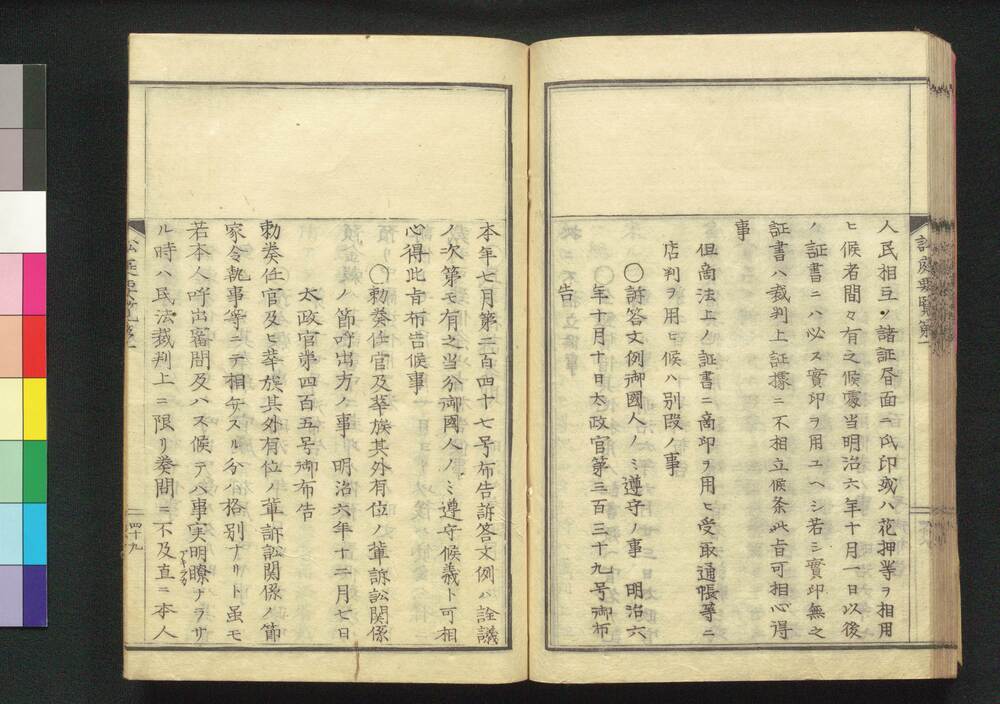 人民相互ノ諸証書面ニ爪印或ハ花押等ヲ相用
ヒ候者間々有之候處当明治六年十月一日以後
ノ証書ニハ必ス實印ヲ用ユヘシ若シ實印無之
証書ハ裁判上証據ニ不相立候条此旨可相心得
事
但商法上ノ証書ニ商印ヲ用ヒ受取通帳等ニ
店判ヲ用ヒ候ハ別段ノ事
〇訴答文例御國人ノミ遵守ノ事　明治六
年十月十日太政官第三百三十九号御布
告
本年七月第二百四十七号布告訴答文例ハ詮議
ノ次第モ有之当分御國人ノミ遵守候義ト可相
心得此旨布告候事
〇勅奏任官及華族其外有位ノ輩訴訟関係
ノ節呼出方ノ事　明治六年十二月七日
太政官第四百五号御布告
勅奏任官及ヒ華族其外有位ノ輩訴訟関係ノ節
家令執事等ニテ相弁スル分ハ格別ナリト虽モ
若本人呼出審問及ハス候テハ事実明瞭ナラサ
アキラカ
ル時ハ民法裁判上ニ限リ奏問ニ不及直ニ本人
四十九